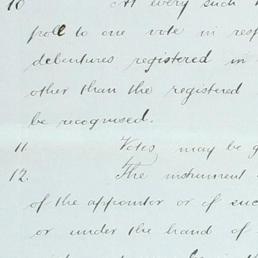 10 At every such
poll to one vote in resp
debentures registered in
other than the registered
be recognised.
11. Votes may be g
12. The instrument
of the appointor or if suc
or under the hand of